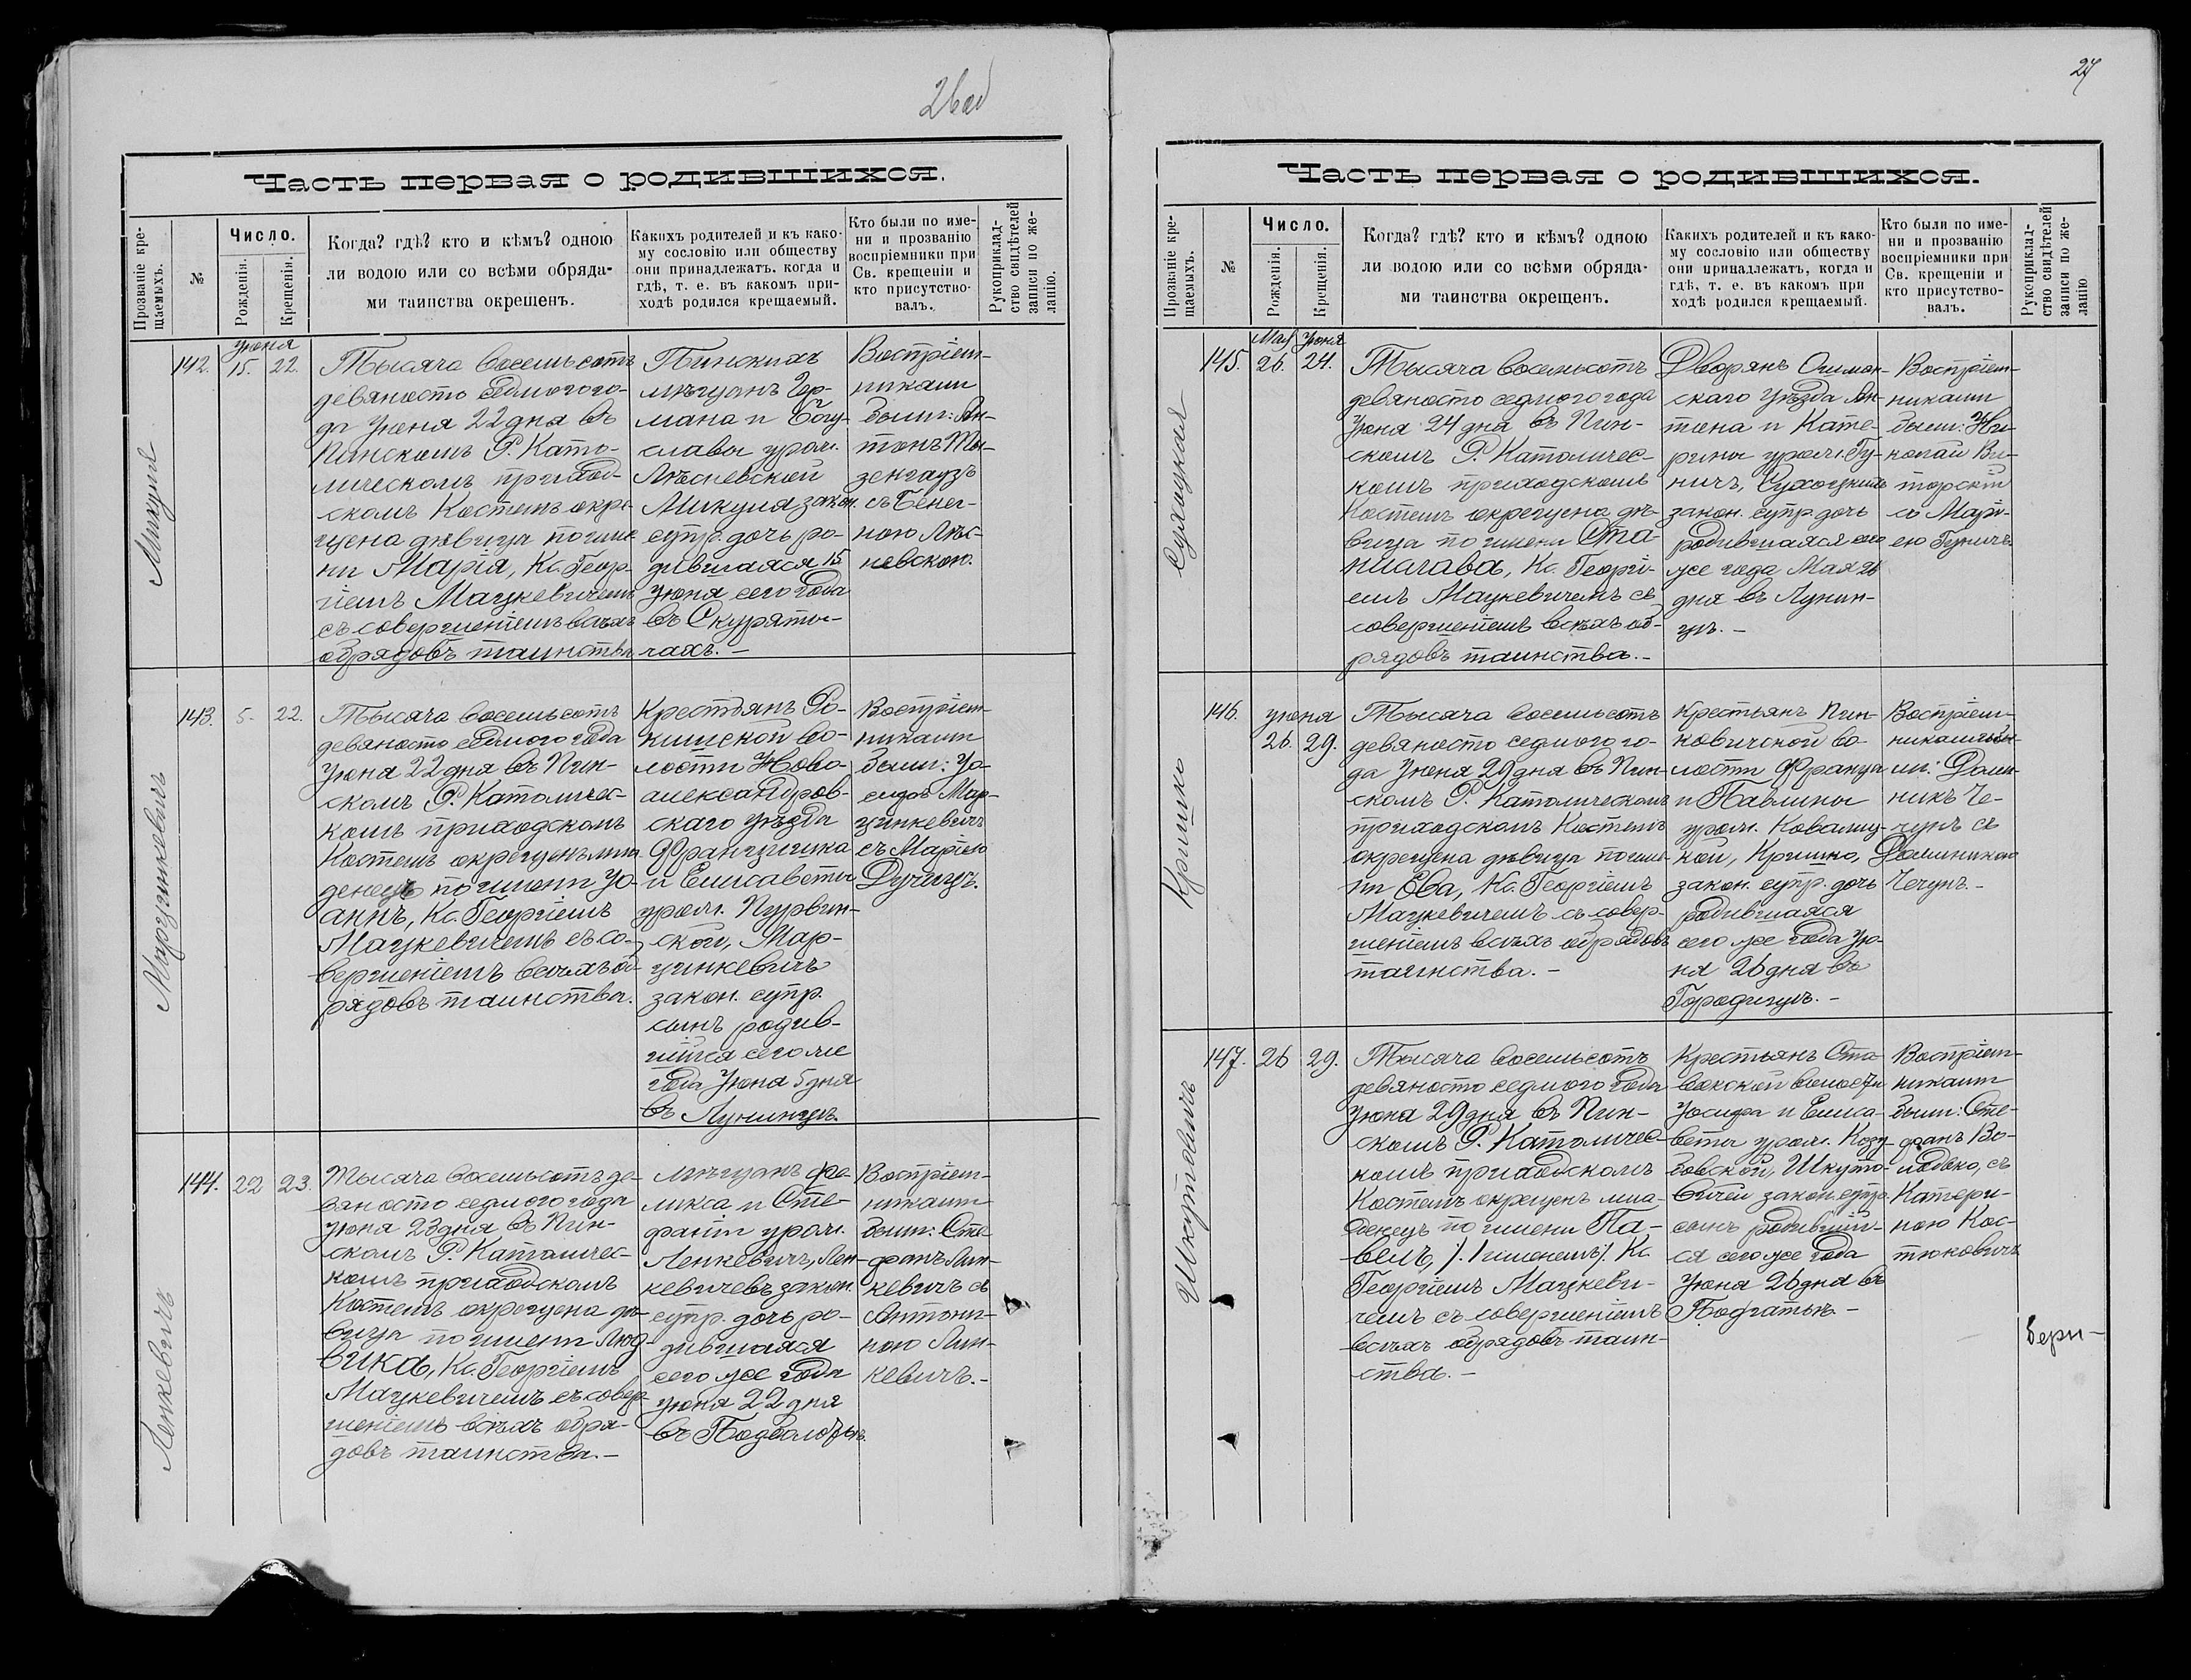 26об
Часть первая о родившихся.
Прозваніе кре-
щаемыхъ.
№
Число.
Рожденія.
Крещенія.
Когда? гдѣ? кто и кѣмъ? одною
ли водою или со всѣми обряда-
ми таинства окрещенъ.
Какихъ родителей и къ како-
му сословію или обществу
они принадлежатъ. когда и
гдѣ, т. е. въ какомъ при-
ходѣ родился крещаемый.
Кто были по име-
ни и прозванію
воспріемники при
Св. крещеніи и
кто присутство-
валъ.
Рукоприклад-
ство свидѣтелей
записи по же-
ланію.
Микуля
142.
Іюня
15. 22.
Тысяча восемьсотъ
девяносто седмого го-
да Іюня 22 дня въ
Пинскомъ Р. Като-
лическомъ приход-
скомъ Костелѣ окре-
щена дѣвица по име
ни Марія, Кс. Геор-
гіемъ Мацкевичемъ
съ совершеніемъ всѣхъ
обрядовъ таинства
Пинскихъ
мѣщанъ Гер-
мана и Богу-
славы урож.
Лѣсневской
Микуля закон.
супр. дочь ро-
дившаяся 15
Іюня сего года
въ Скуряти-
чахъ. —
Воспріем-
никами
были: Ан-
тонъ Ти-
зенгаузъ
съ Бене-
ною Лѣс-
невскою.
Марцинкевичъ
143. 5. 22.
Тысяча восемьсотъ
девяносто седмого года
Іюня 22 дня въ Пин-
скомъ Р. Католичес-
комъ приходскомъ
Костелѣ окрещенъ мла
денецъ по имени Іо-
аннъ, Кс. Георгіемъ
Мацкевичемъ съ со-
вершеніемъ всѣхъ об-
рядовъ таинства.
Крестьянъ Ро-
кишской во-
лости Ново-
александров-
скаго уѣзда
Францишка
и Елисаветы
урож. Пурвин-
ской, Мар-
цинкевичъ
закон. супр.
сынъ родив-
шійся сего же
года Іюня 5 дня
въ Лунинцѣ.
Воспріем-
никами
были: Іо-
сифъ Мар-
цинкевичъ
съ Маріею
Дучицъ.
Ленкевичъ
144. 22 23.
Тысяча восемьсотъ де-
вяносто седмого года
Іюня 23 дня въ Пин-
скомъ Р. Католичес-
комъ приходскомъ
Костелѣ окрещена дѣ-
вица по имени Люд-
вика, Кс. Георгіемъ
Мацкевичемъ съ совер-
шеніемъ всѣхъ обря-
довъ таинства. —
Мѣщанъ Фе-
ликса и Сте-
фаніи урож.
Ленкевичъ, Лен-
кевичевъ закон.
супр. дочь ро-
дившаяся
сего же года
Іюня 22 дня
въ Подболотьѣ.
Воспріем-
никами
были: Сте-
фанъ Лин-
кевичъ съ
Антони-
ною Лин-
кевичъ. —
27
Часть первая о родившихся.
Прозваніе кре-
щаемыхъ.
№
Число.
Рожденія.
Крещенія.
Когда? гдѣ? кто и кѣмъ? одною
ли водою или со всѣми обряда-
ми таинства окрещенъ.
Какихъ родителей и къ како-
му сословію или обществу
они принадлежатъ, когда и
гдѣ, т. е. въ какомъ при
ходѣ родился крещаемый.
Кто были по име-
ни и прозванію
воспріемники при
Св. крещеніи и
кто присутство-
валъ.
Рукоприклад-
ство свидѣтелей
записи по же-
ланію
Сухоцкая
145.
Мая Іюня
26. 24.
Тысяча восемьсотъ
девяносто седмого года
Іюня 24 дня въ Пин-
скомъ Р. Католичес-
комъ приходскомъ
Костелѣ окрещена дѣ-
вица по имени Ста-
нислава, Кс. Георгі-
емъ Мацкевичемъ съ
совершеніемъ всѣхъ об-
рядовъ таинства. —
Дворянъ Ошмян-
скаго уѣзда Ан-
тона и Кате-
рины урож. Гу-
ничъ, Сухоцкихъ
закон. супр. дочь
родившаяся сего
же года Мая 26
дня въ Лунин-
цѣ. —
Воспріем-
никами
были: Ни-
колай Ви-
торскій
съ Марі-
ею Гуничъ.
Кришко
146.
Іюня
26. 29.
Тысяча восемьсотъ
девяносто седмого го-
да Іюня 29 дня въ Пин-
скомъ Р. Католическомъ
приходскомъ Костелѣ
окрещена дѣвица по име-
ни Ева, Кс. Георгіемъ
Мацкевичемъ съ совер-
шеніемъ всѣхъ обрядовъ
таинства. —
Крестьянъ Пин-
ковичской во-
лости Франца
и Павлины
урож. Ковалиц-
кой, Кришко,
закон. супр. дочь
родившаяся
сего же года Ію-
ня 26 дня въ
Городищѣ. —
Воспріем-
никами бы-
ли: Доми-
никъ Че-
чунъ съ
Доминикою
Чечунъ. —
Шкутовичъ
147. 26 29.
Тысяча восемьсотъ
девяносто седмого года
Іюня 29 дня въ Пин-
скомъ Р. Католичес-
комъ приходскомъ
Костелѣ окрещенъ мла-
денецъ по имени Па-
велъ, /. 1 именемъ/. Кс.
Георгіемъ Мацкеви-
чемъ съ совершеніемъ
всѣхъ обрядовъ таин-
ства. —
Крестьянъ Ста-
вокской волости
Іосифа и Елиса-
веты урож. Козу-
бовской, Шкуто-
вичей закон. супр.
сынъ родившій-
ся сего же года
Іюня 26 дня въ
Подгатьѣ. —
Воспріем-
никами
были: Сте-
фанъ Во-
лодько, съ
Катери-
ною Кос-
тюковичъ
Вери-